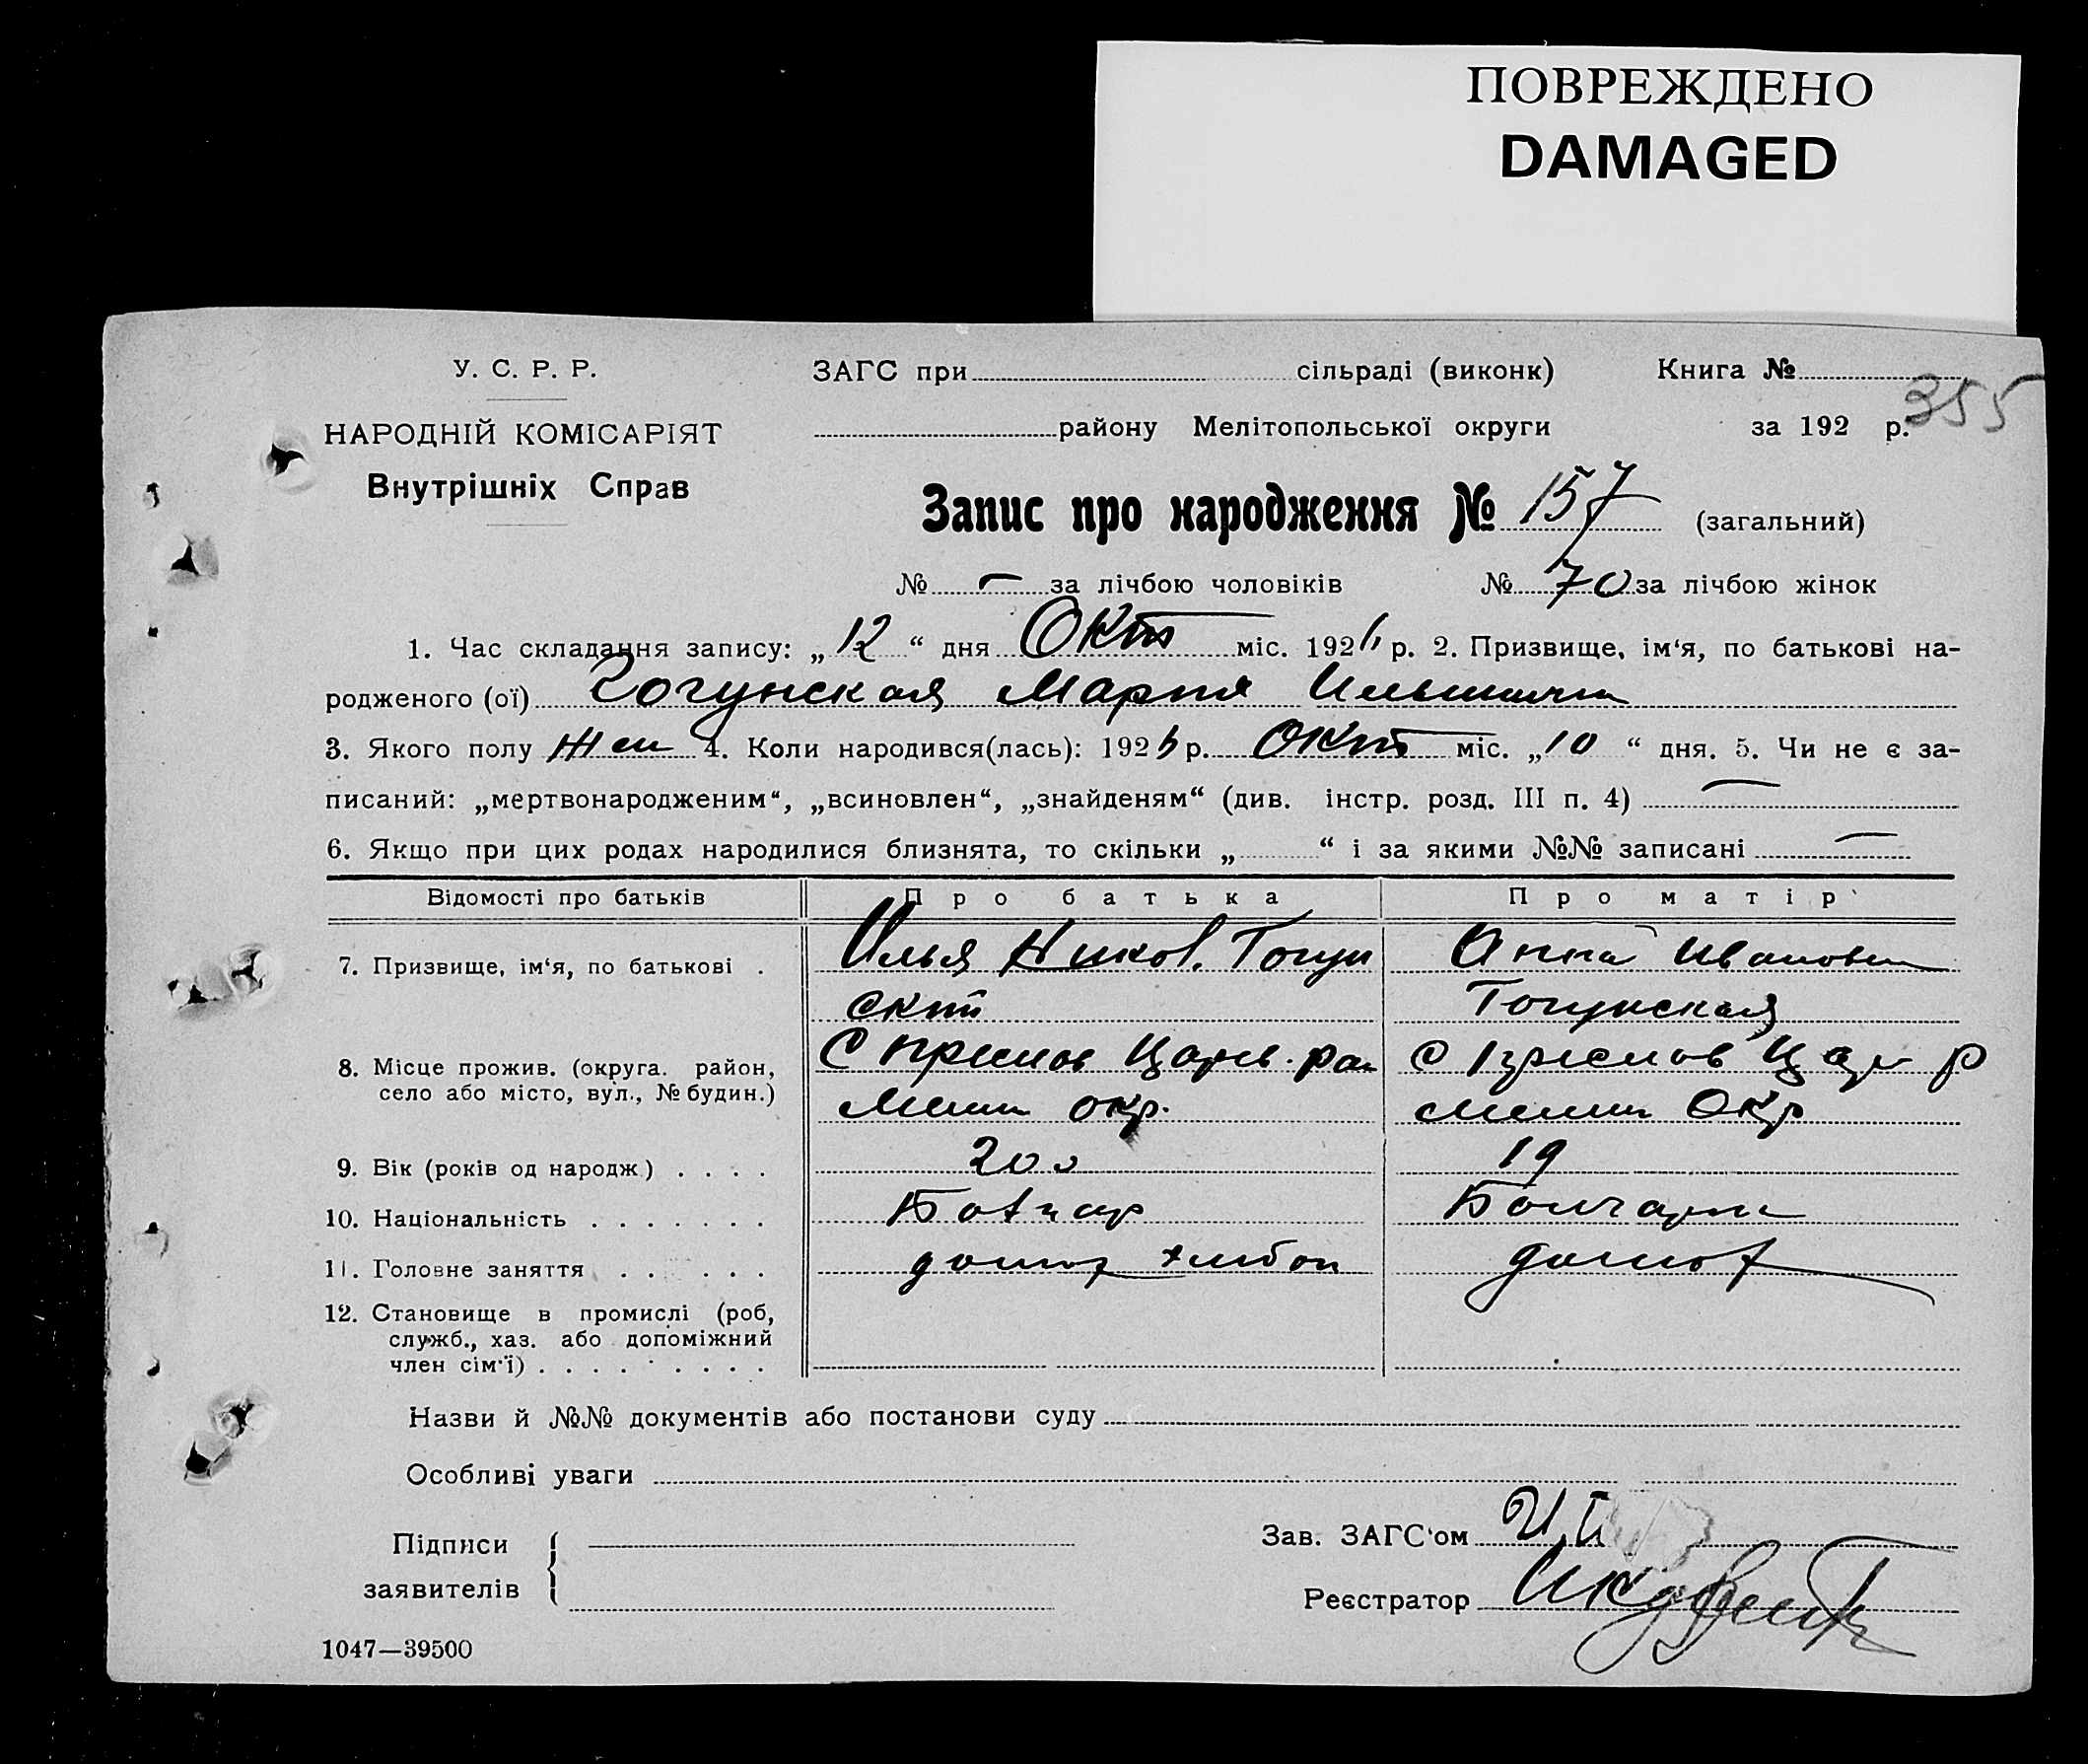 ПОВРЕЖДЕНО
DAMAGED
У. С. Р. Р.
НАРОДНІЙ КОМІСАРІЯТ
Внутрішніх Справ
ЗАГС при сільраді (виконк) Книга №
355
району Мелітопольської округи за 192 р.
Запис про народження № 157 (загальний)
№ — за лічбою чоловіків № 70 за лічбою жінок
1. Час складання запису: „12“ дня Окт міс. 192 р. 2. Призвище, ім‘я, по батькові на-
родженого (ої) Тогунская Мария
3. Якого полу жен 4. Коли народився(лась): 192 р. Окт міс. „10“ дня. 5. Чи не є за-
писаний: „мертвонародженим“, „всиновлен“, „знайденям“ (див. інстр. розд. III п. 4) —
6. Якщо при цих родах народилися близнята, то скільки „ “ і за якими №№ записані —
Відомості про батьків Про батька Про матір
7. Призвище, ім‘я, по батькові . Илья Никол. Тогун Анна Ивановн
ский Тогунская
8. Місце прожив. (округа. район, село або місто, вул., № будин.) С Преслав Царев. ра С Преслав Цар р
Мели окр. Мелит Окр
9. Вік (років од народж.) . . . . 20 19
10. Національність . . . . . . . Болгар Болгарка
11. Головне заняття . . . . . .
12. Становище в промислі (роб,
служб., хаз. або допоміжний
член сім‘ї) . . . . . . . . .
Назви й №№ документів або постанови суду
Особливі уваги
Підписи
заявителів
Зав. ЗАГС‘ом
Реєстратор
1047—39500